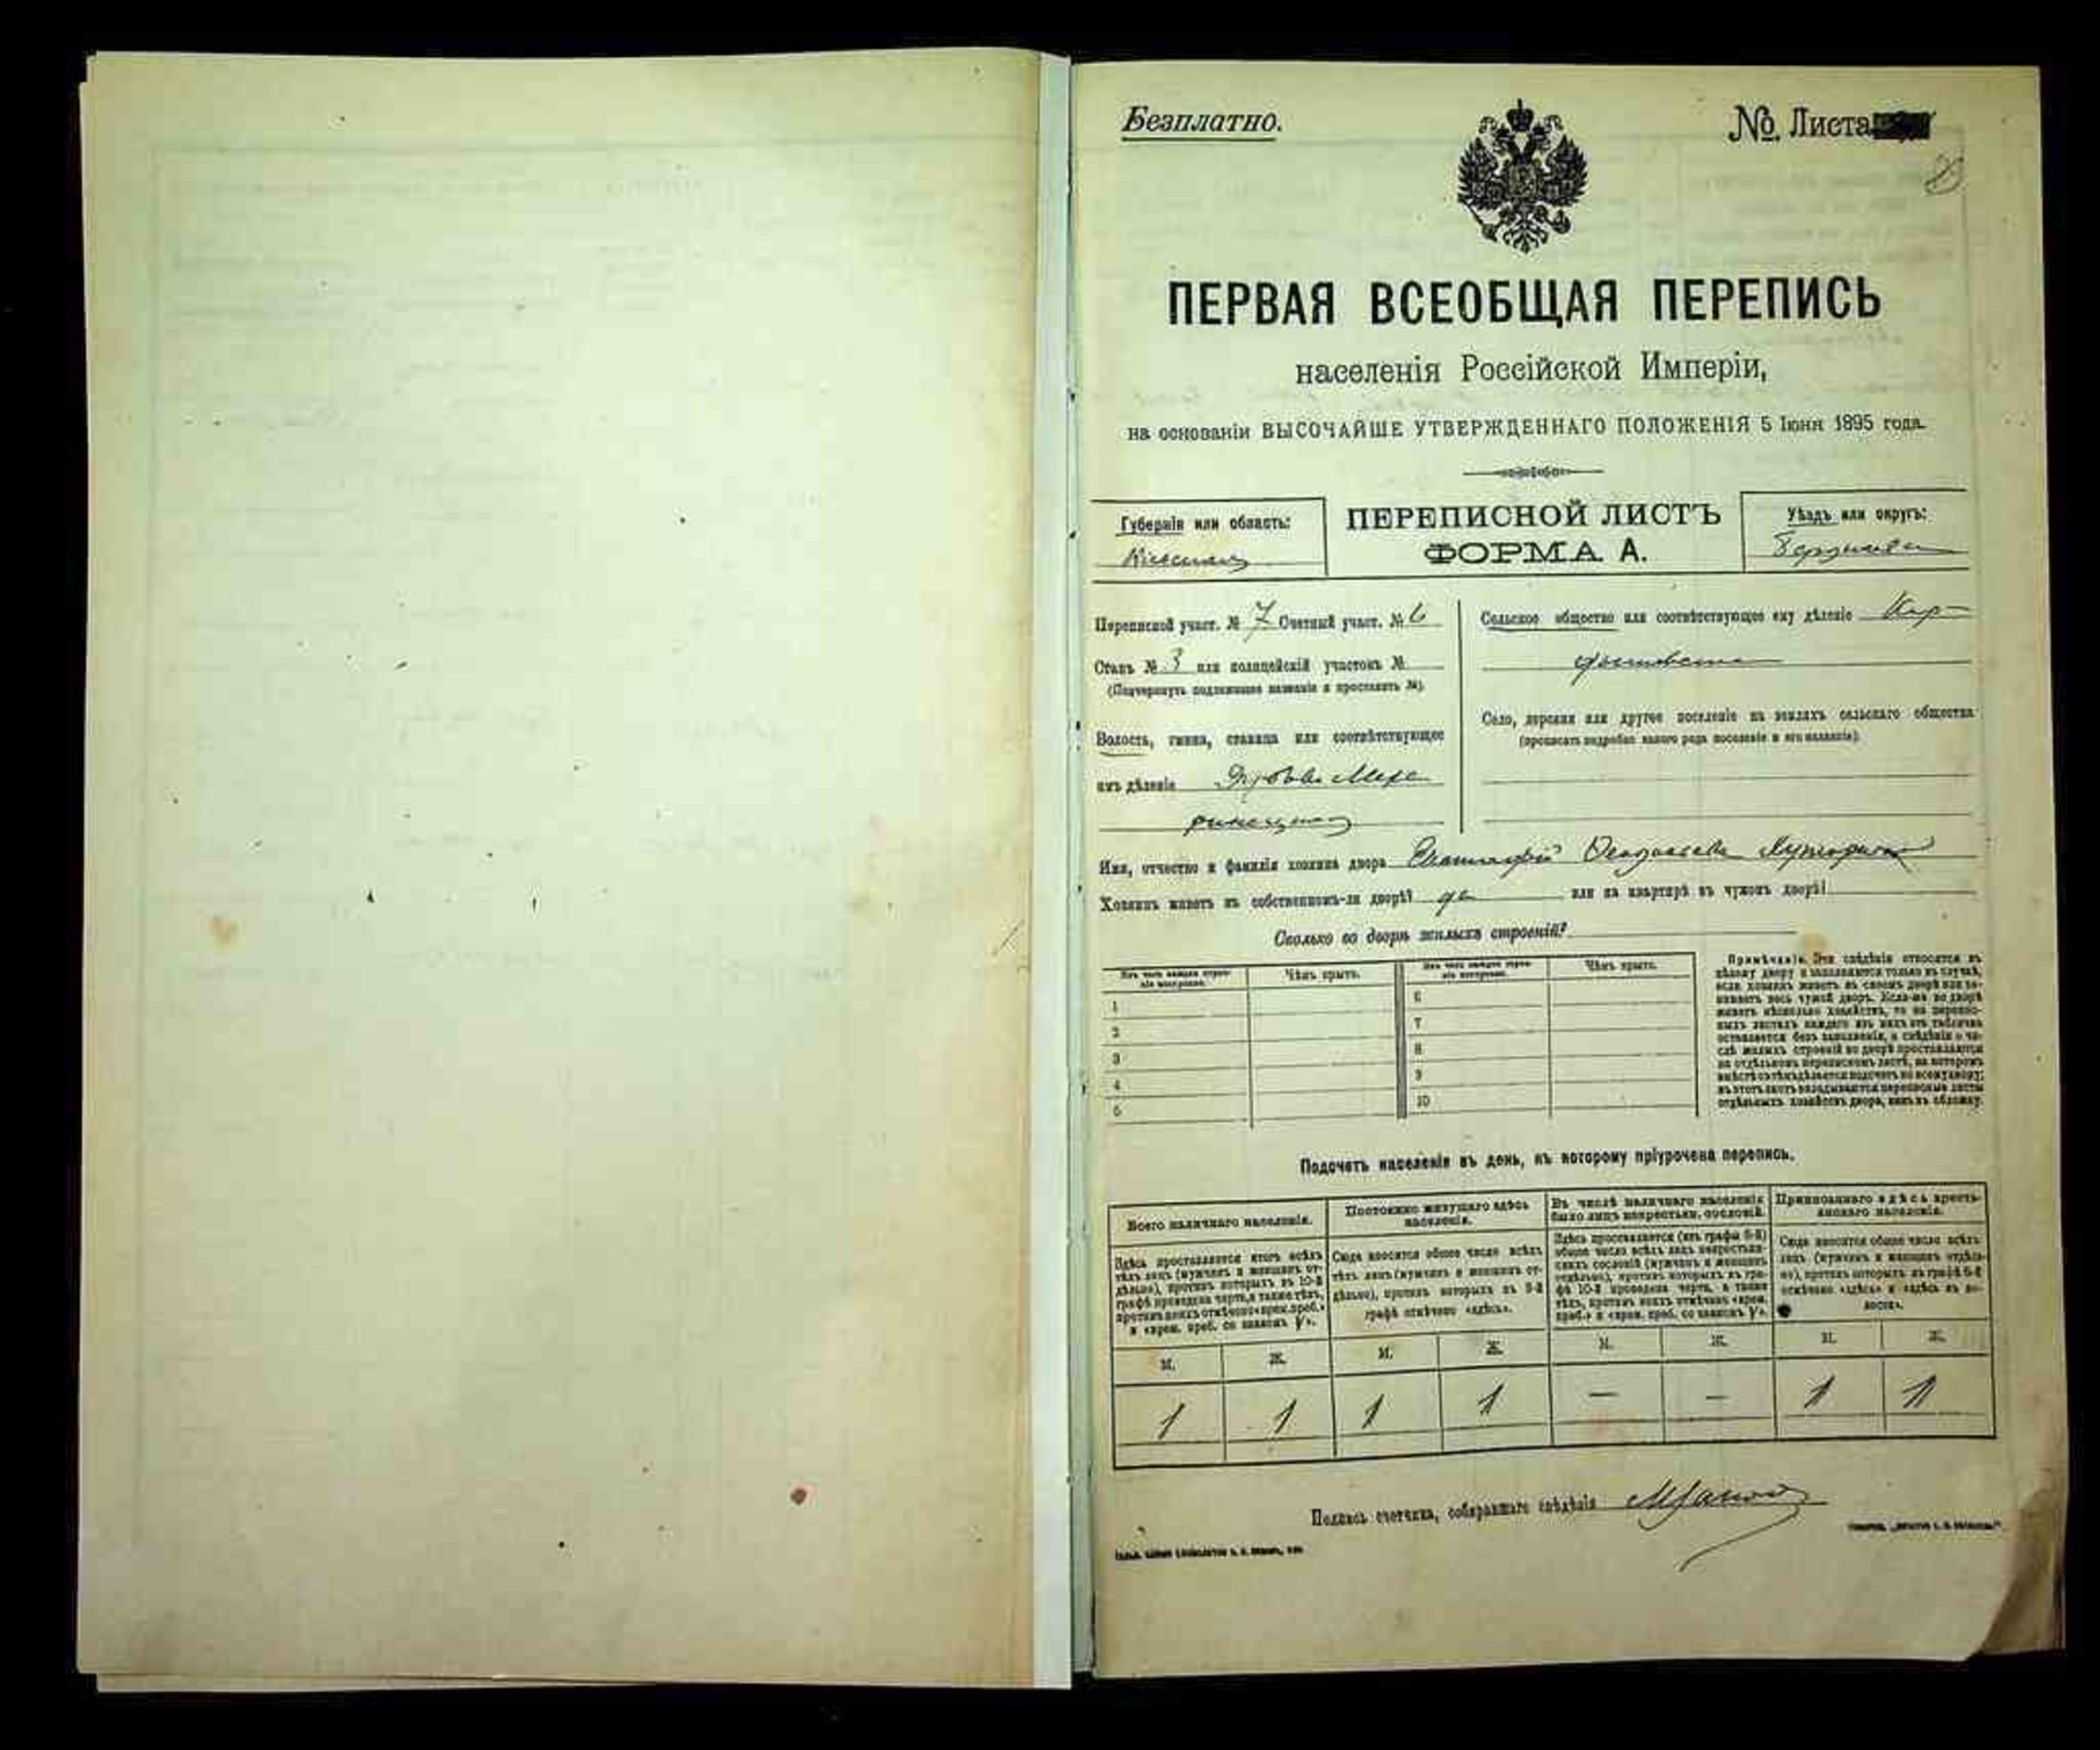 Безплатно.
№ Листа
ПЕРВАЯ ВСЕОБЩАЯ ПЕРЕПИСЬ
населенія Россійской Имперіи,
на основаніи ВЫСОЧАЙШЕ УТВЕРЖДЕННАГО ПОЛОЖЕНІЯ 5 Іюня 1895 года.
Губернія или область:
Кіевская
ПЕРЕПИСНОЙ ЛИСТЪ
ФОРМА А.
Уѣздъ или округъ:
Переписной участ. № 7 Счетный участ. № 6
Станъ № 3 или полицейскій участокъ №
(Подчеркнуть подлежащее названіе и проставить №).
Волость, гмина, станица или соотвѣтствующее
имъ дѣленіе
Сельское общество или соотвѣтствующее ему дѣленіе
Село, деревня или другое поселеніе на земляхъ сельскаго общества
(прописать подробно какого рода поселеніе и его названіе).
Имя, отчество и фамилія хозяина двора
Хозяинъ живетъ въ собственномъ-ли дворѣ? да или на квартирѣ въ чужомъ дворѣ?
Сколько во дворѣ жилыхъ строеній?
Изъ чего каждое строе-
ніе построено.
Чѣмъ крыто.
Изъ чего каждое строе-
ніе построено.
Чѣмъ крыто.
1
6
2
7
3
8
4
9
5
10
Примѣчаніе. Эти свѣдѣнія относятся къ
цѣлому двору и заполняются только въ случаѣ,
если хозяинъ живетъ въ своемъ дворѣ или за-
нимаетъ весь чужой дворъ. Если-же во дворѣ
живетъ нѣсколько хозяйствъ, то на перепис-
ныхъ листахъ каждаго изъ нихъ эта табличка
оставляется безъ заполненія, а свѣдѣнія о чи-
слѣ жилыхъ строеній во дворѣ проставляются
на отдѣльномъ переписномъ листѣ, на которомъ
вмѣстѣ съ тѣмъ дѣлается подсчетъ по всему двору;
въ этотъ листъ вкладываются переписные листы
отдѣльныхъ хозяйствъ двора, какъ въ обложку.
Подсчетъ населенія въ день, къ которому пріурочена перепись.
Всего наличнаго населенія.
Постоянно живущаго здѣсь
населенія.
Въ числѣ наличнаго населенія
было лицъ некрестьян. сословій.
Приписаннаго здѣсь кресть-
янскаго населенія.
Здѣсь проставляется итогъ всѣхъ
тѣхъ лицъ (мужчинъ и женщинъ от-
дѣльно), противъ которыхъ въ 10-й
графѣ проведена черта, а также тѣхъ,
противъ коихъ отмѣчено «врем. преб.»
и «врем. преб. со знакомъ V».
Сюда вносится общее число всѣхъ
тѣхъ лицъ (мужчинъ и женщинъ от-
дѣльно), противъ которыхъ въ 9-й
графѣ отмѣчено «здѣсь».
Здѣсь проставляется (изъ графы 6-й)
общее число всѣхъ лицъ некрестьян-
скихъ сословій (мужчинъ и женщинъ
отдѣльно), противъ которыхъ въ гра-
фѣ 10-й проведена черта, а также
тѣхъ, противъ коихъ отмѣчено «врем.
преб.» и «врем. преб. со знакомъ V».
Сюда вносится общее число всѣхъ
лицъ (мужчинъ и женщинъ отдѣль-
но), противъ которыхъ въ графѣ 8-й
отмѣчено «здѣсь» и «здѣсь въ во-
лости».
М. Ж. М. Ж. М. Ж. М. Ж.
1 1 1 1 — — 1 1
Подпись счетчика, собиравшаго свѣдѣнія